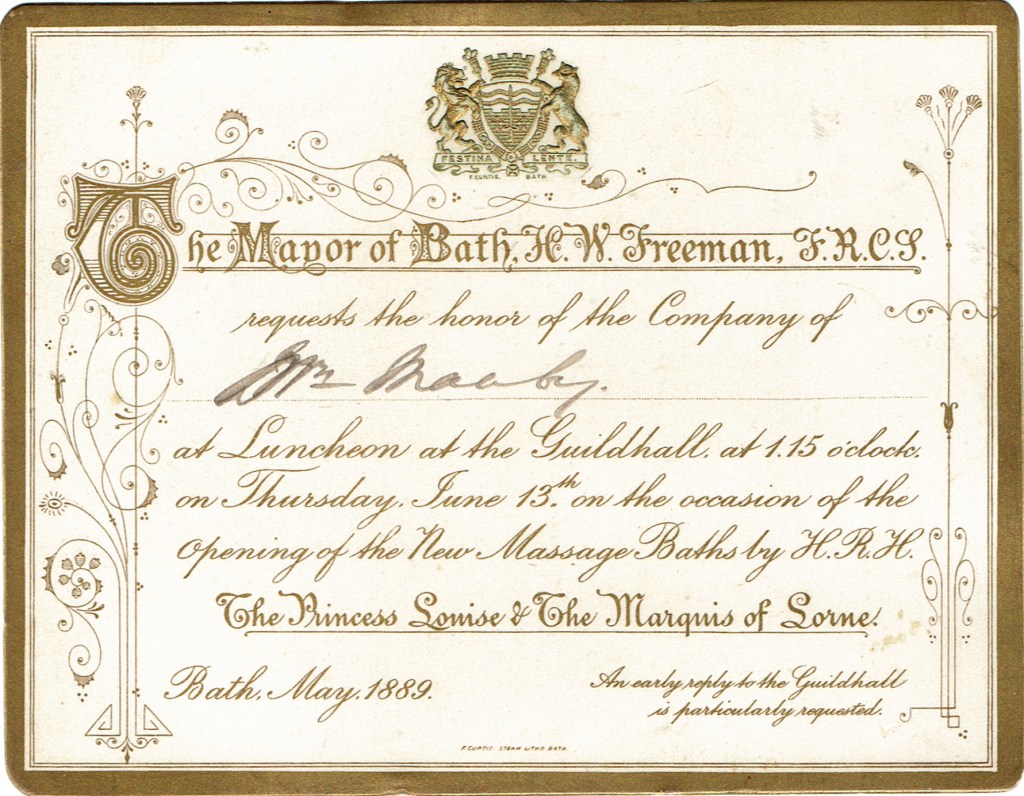 FESTINA LENTE.
F. CURTIS. BATH.
The Mayor of Bath, H. W. Freeman, F.R.C.S.
requests the honor of the Company of
at Luncheon at the Guildhall, at 1.15 o'clock,
on Thursday, June 13th on the occasion of the
Opening of the New Massage Baths by H.R.H.
The Princess Louise & The Marquis of Lorne.
Bath, May, 1889.
An early reply to the Guildhall
is particularly requested.
F. CURTIS. STEAM LITHO. BATH.